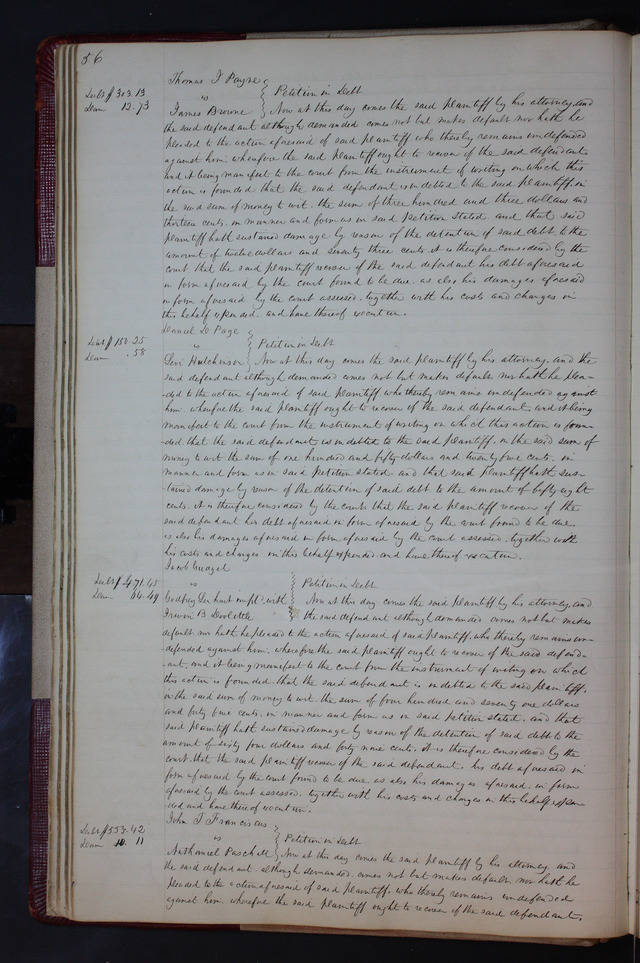 56
Thomas J Payne
vs } Petition in Debt
Debt $303.13
Dam 12.73
James Browne } Now at this day comes the said plaintiff by his attorney and
the said defendant although demanded comes not but makes default nor hath he
pleaded to the action aforesaid of said plaintiff who thereby remains undefended
against him wherefore the said plaintiff ought to recover of the said defendant
and it being manifest to the court from the instrument of writing on which this
action is founded that the said defendant is indebted to the said plaintiff in
the said sum of money to wit the sum of three hundred and three dollars and
thirteen cents in manner and form as in said Petition stated and that said
plaintiff hath sustained damage by reason of the detention of said debt to the
amount of twelve dollars and seventy three cents. It is therefore considered by the
court that the said plaintiff recover of the said defendant his debt aforesaid
in form aforesaid by the court found to be due as also his damages aforesaid
in form aforesaid by the court assessed together with his costs and charges in
this behalf expended and have thereof execution.
Daniel D Page
vs } Petition in Debt
Debt $150.25
Dam .58
Levi Hutchinson } Now at this day comes the said plaintiff by his attorney and the
said defendant although demanded comes not but makes default nor hath he plea-
ded to the action aforesaid of said plaintiff who thereby remains undefended against
him wherefore the said plaintiff ought to recover of the said defendant and it being
manifest to the court from the instrument of writing on which this action is foun-
ded that the said defendant is indebted to the said plaintiff in the said sum of
money to wit the sum of one hundred and fifty dollars and twenty five cents in
manner and form as in said Petition stated and that said plaintiff hath sus-
tained damage by reason of the detention of said debt to the amount of fifty eight
cents. It is therefore considered by the court that the said plaintiff recover of the
said defendant his debt aforesaid in form aforesaid by the court found to be due
as also his damages aforesaid in form aforesaid by the court assessed together with
his costs and charges in this behalf expended and have thereof execution.
Jacob
vs } Petition in Debt
Debt $471.45
Dam 64.49
Godfrey impl. with } Now at this day comes the said plaintiff by his attorney and
B Doolittle } the said defendant although demanded comes not but makes
default nor hath he pleaded to the action aforesaid of said plaintiff who thereby remains un-
defended against him wherefore the said plaintiff ought to recover of the said defend-
ant and it being manifest to the court from the instrument of writing on which
this action is founded that the said defendant is indebted to the said plaintiff
in the said sum of money to wit the sum of four hundred and seventy one dollars
and forty five cents in manner and form as in said petition stated and that
said plaintiff hath sustained damage by reason of the detention of said debt to the
amount of sixty four dollars and forty nine cents. It is therefore considered by the
court that the said plaintiff recover of the said defendant his debt aforesaid in
form aforesaid by the court found to be due as also his damages aforesaid in form
aforesaid by the court assessed together with his costs and charges in this behalf expen-
ded and have thereof execution.
John T Franciscus
vs } Petition in Debt
Debt $553.42
Dam 10.11
Nathaniel Paschall } Now at this day comes the said plaintiff by his attorney and
the said defendant although demanded comes not but makes default nor hath he
pleaded to the action aforesaid of said plaintiff who thereby remains undefended
against him wherefore the said plaintiff ought to recover of the said defendant,